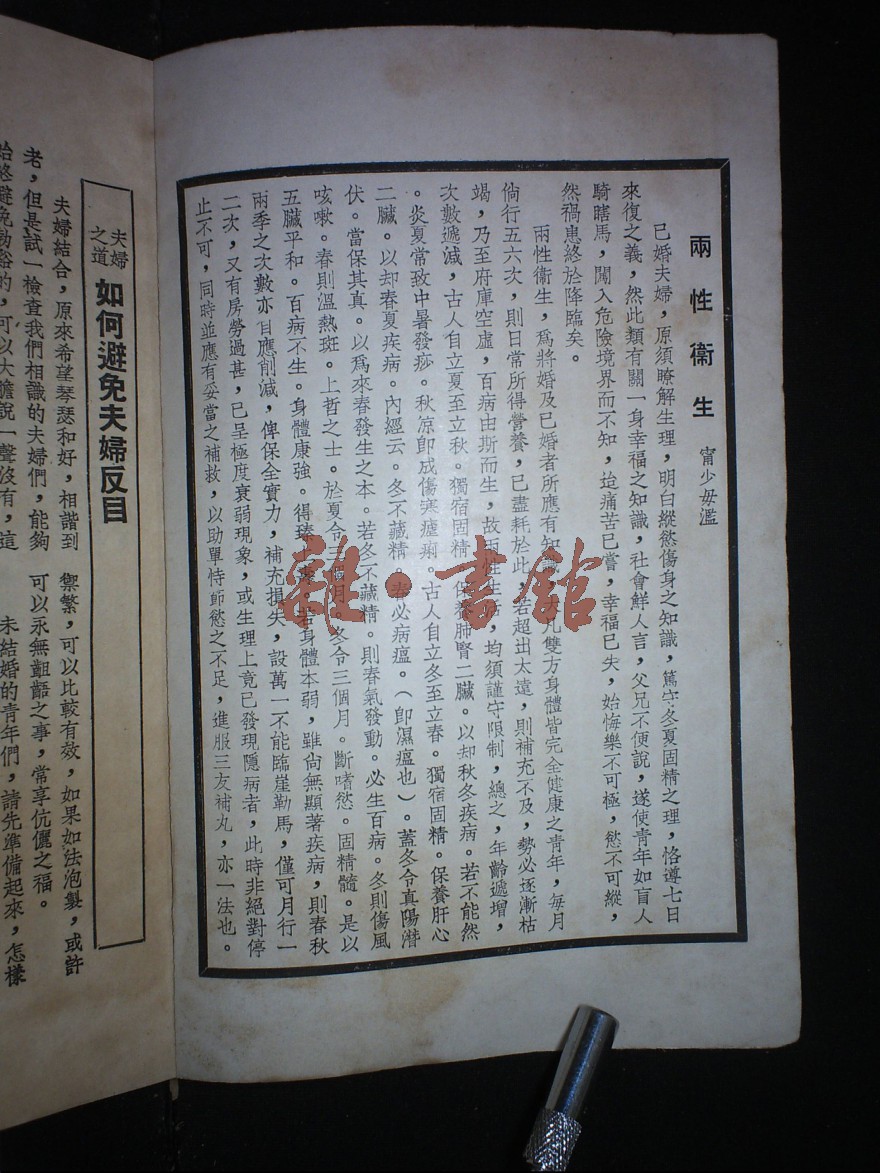 兩性衞生　甯少毋濫
已婚夫婦，原須瞭解生理，明白縱慾傷身之知識，篤守冬夏固精之理，恪遵七日
來復之義，然此類有關一身幸福之知識，社會鮮人言，父兄不便說，遂使青年如盲人
騎瞎馬，闖入危險境界而不知，迨痛苦已嘗，幸福已失，始悔樂不可極，慾不可縱，
然禍患終於降臨矣。
兩性衞生，爲將婚及已婚者所應有知，凡雙方身體皆完全健康之青年，每月
倘行五六次，則日常所得營養，已盡耗於此，若超出太遠，則補充不及，勢必逐漸枯
竭，乃至府庫空虛，百病由斯而生，故兩性生活，均須謹守限制，總之，年齡遞增，
次數遞減，古人自立夏至立秋。獨宿固精。保養肺腎二臟。以却秋冬疾病。若不能然
。炎夏常致中暑發痧。秋涼卽成傷寒瘧痢。古人自立冬至立春。獨宿固精。保養肝心
二臟。以却春夏疾病。內經云。冬不藏精。春必病瘟。（卽濕瘟也）。蓋冬令真陽潛
伏。當保其真。以爲來春發生之本。若冬不藏精。則春氣發動。必生百病。冬則傷風
咳嗽。春則溫熱斑。上哲之士。於夏令三個月。冬令三個月。斷嗜慾。固精髓。是以
五臟平和。百病不生。身體康強。得臻 若身體本弱，雖尙無顯著疾病，則春秋
兩季之次數亦自應削減，俾保全實力，補充損失，設萬一不能臨崖勒馬，僅可月行一
二次，又有房勞過甚，已呈極度衰弱現象，或生理上竟已發現隱病者，此時非絕對停
止不可，同時並應有妥當之補救，以助單恃節慾之不足，進服三友補丸，亦一法也。
雜·書館
夫婦之道
如何避免夫婦反目
夫婦結合，原來希望琴瑟和好，相諧到
老，但是試一檢查我們相識的夫婦們，能夠
始終避免勃谿的，可以大膽說一聲沒有，這
禦繁，可以比較有效，如果如法泡製，或許
可以永無齟齬之事，常享伉儷之福。
未結婚的青年們，請先準備起來，怎樣